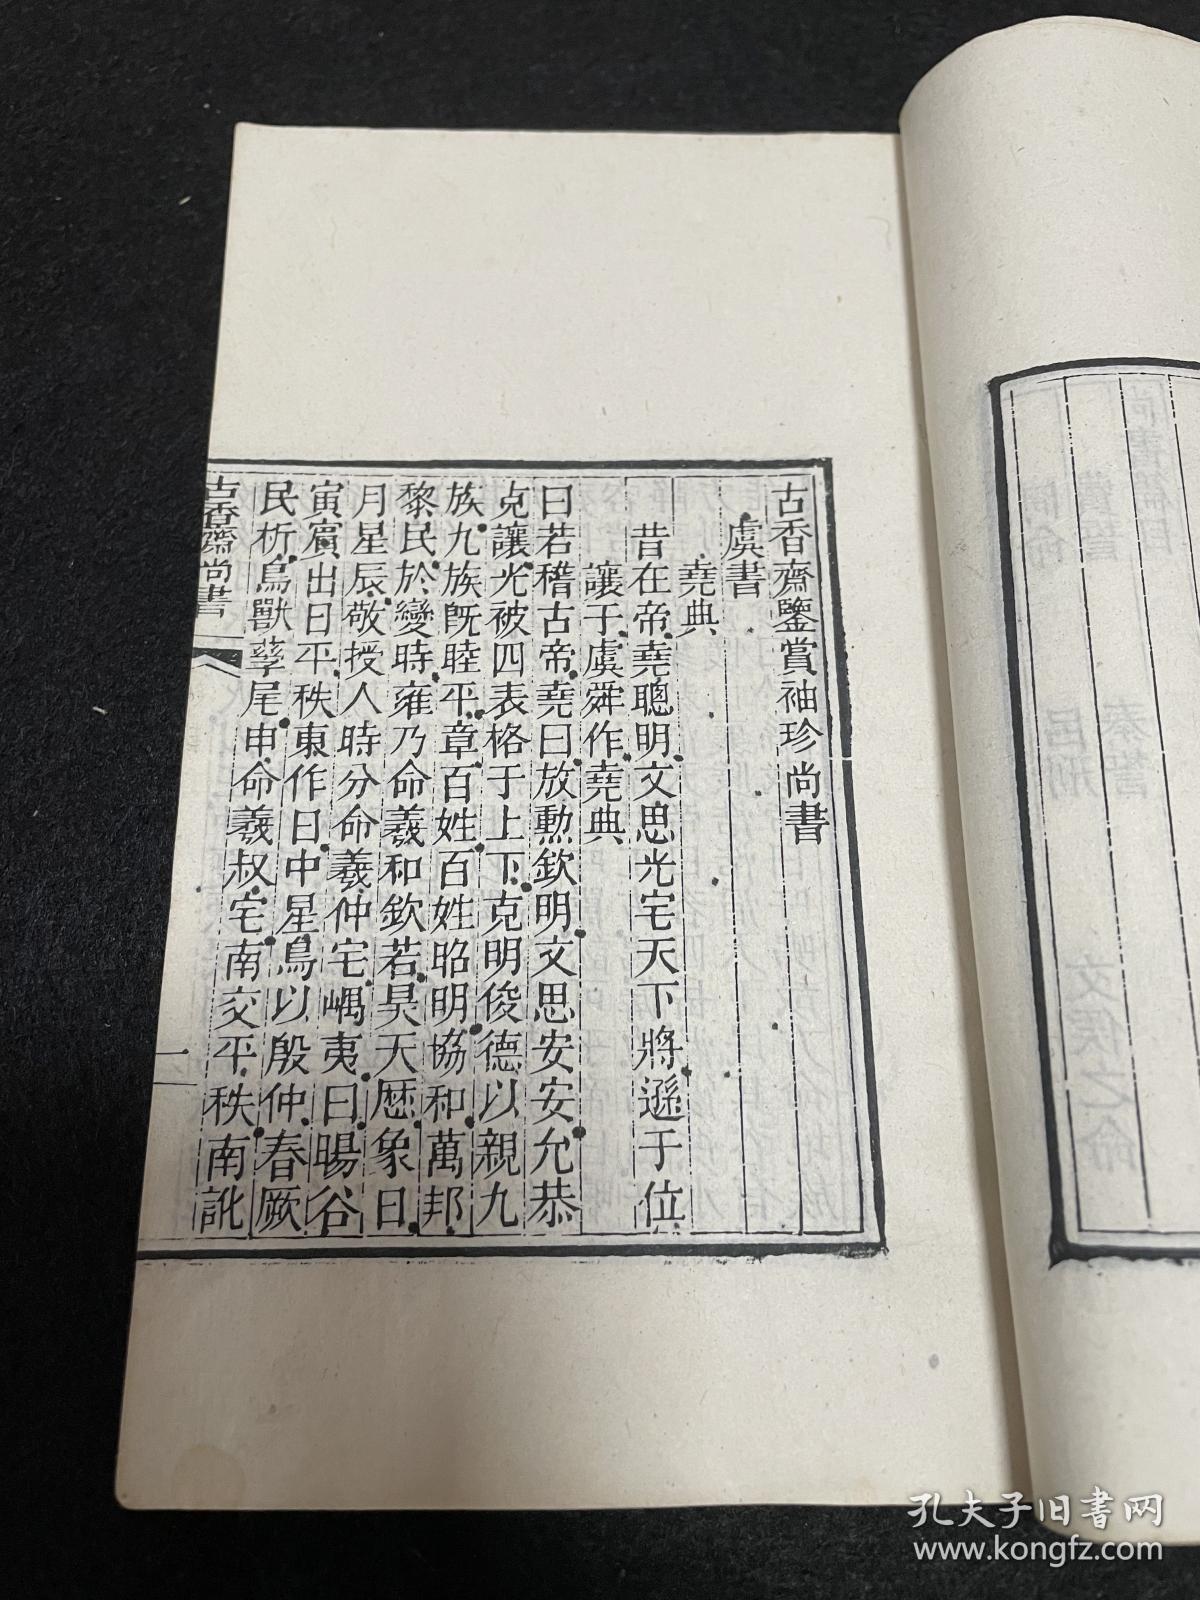 古香齋鑒賞袖珍尚書
虞書
堯典
昔在帝堯聰明文思光宅天下將遜于位
讓于虞舜作堯典
曰若稽古帝堯曰放勲欽明文思安安允恭
克讓光被四表格于上下克明俊德以親九
族九族旣睦平章百姓百姓昭明協和萬邦
黎民於變時雍乃命羲和欽若昊天厯象日
月星辰敬授人時分命羲仲宅嵎夷曰暘谷
寅賓出日平秩東作日中星鳥以殷仲春厥
民析鳥獸孳尾申命羲叔宅南交平秩南訛
古香齋尚書
二
孔夫子旧書网
www.kongfz.com